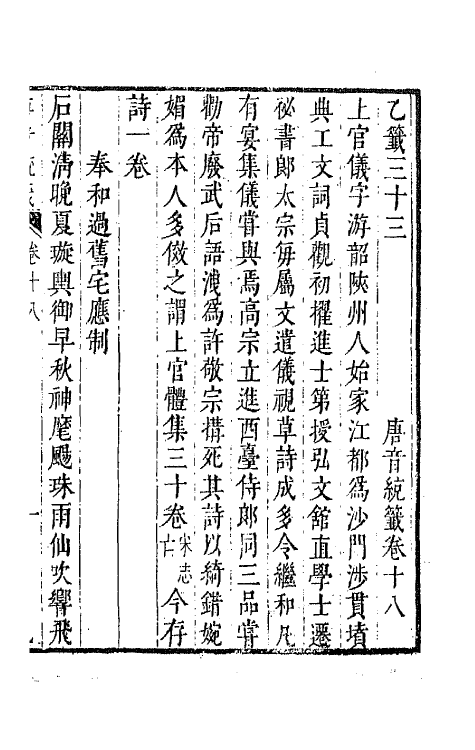 乙籤三十三　唐音統籤卷十八
上官儀字游韶陝州人始家江都爲沙門涉貫墳
典工文詞貞觀初擢進士第授弘文館直學士遷
祕書郎太宗每屬文遣儀視草詩成多令繼和凡
有宴集儀嘗與焉高宗立進西臺侍郎同三品嘗
勸帝廢武后語洩爲許敬宗搆死其詩以綺錯婉
媚爲本人多傚之謂上官體集三十卷宋志亡今存
詩一卷
奉和過舊宅應制
石關淸晚夏璇輿御早秋神麾颺珠雨仙吹響飛
卷十八 一